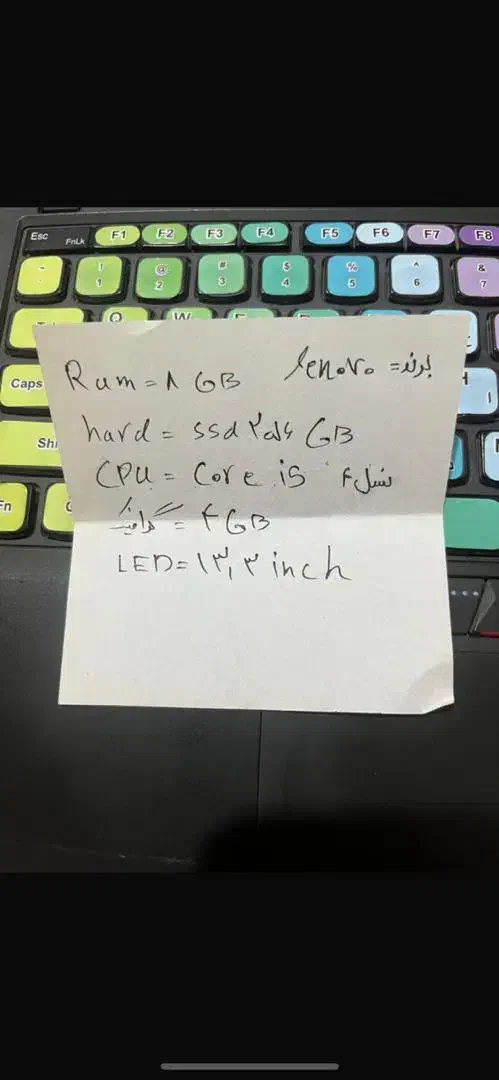 Esc FnLk F1 F2 F3 F4 F5 F6 F7 F8
! 1 @ 2 # 3 $ 4 % 5 ^ 6 & 7
Q W
Caps
برند= lenovo
Ram = ۸ GB
hard = ssd ۲۵۶ GB
CPU = Core i5 نسل ۴
گرافیک = ۴ GB
LED = ۱۳,۳ inch